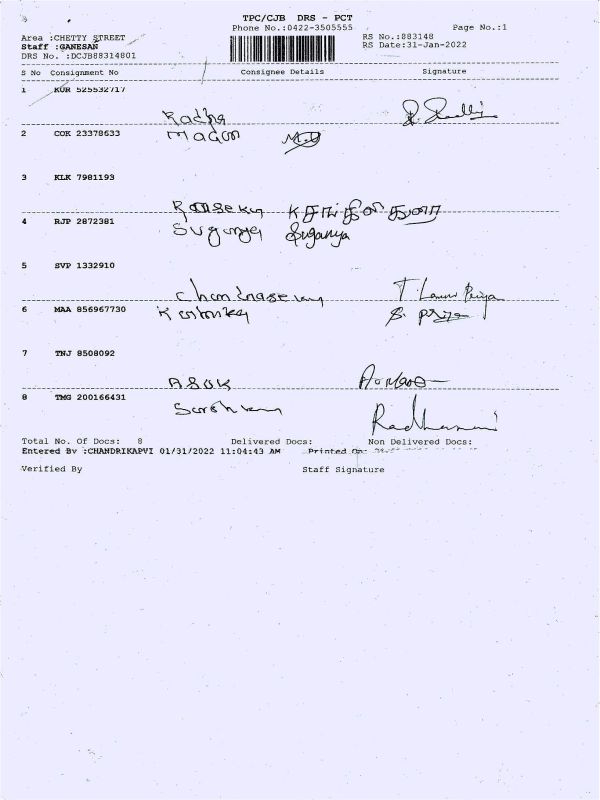 TPC/CJB DRS - PCT
Phone No.:0422-3505555 Page No.:1
Area :CHETTY STREET RS No.:883148
Staff :GANESAN RS Date:31-Jan-2022
DRS No. :DCJB88314801
S No Consignment No Consignee Details Signature
1 KUR 525532717
Radha
2 COK 23378633 Madan
3 KLK 7981193
4 RJP 2872381 Suganya Suganya
5 SVP 1332910
Chandrasekar
6 MAA 856967730 S. Priya
7 TNJ 8508092
ASOK
8 TMG 200166431
Radhamani
Total No. Of Docs: 8 Delivered Docs: Non Delivered Docs:
Entered By :CHANDRIKAPVI 01/31/2022 11:04:43 AM Printed On:
Verified By Staff Signature